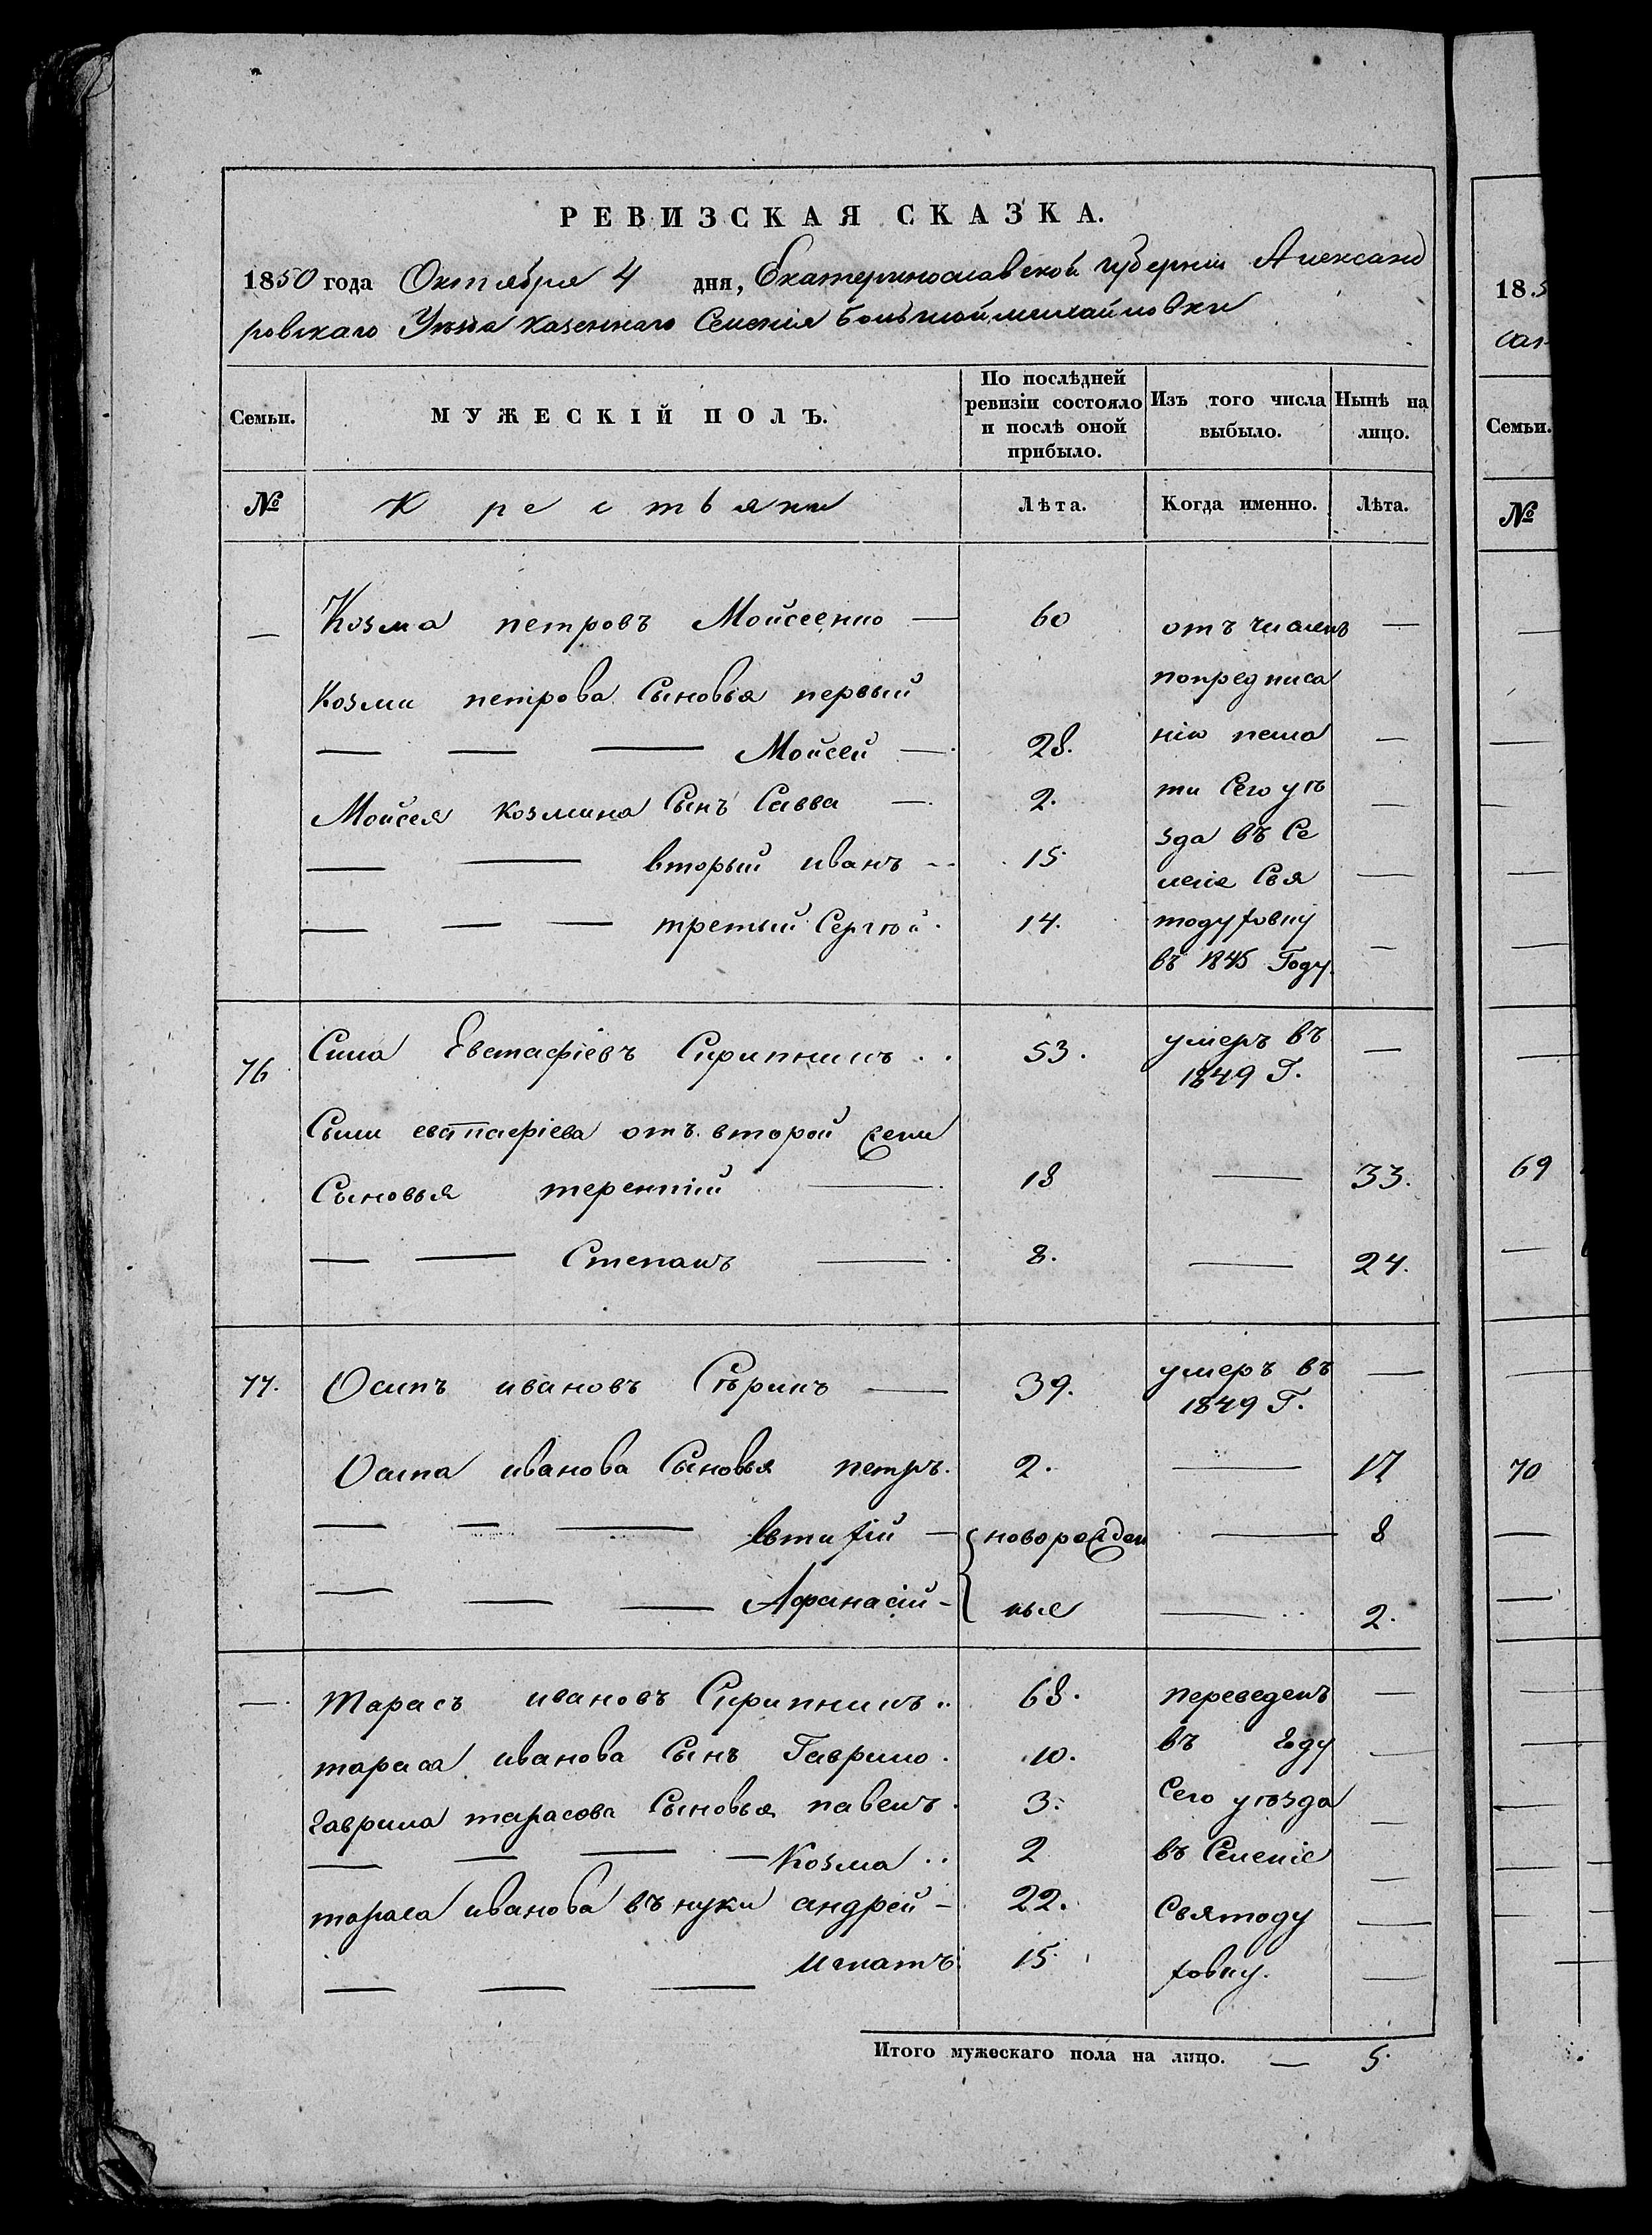 РЕВИЗСКАЯ СКАЗКА.
1850 года Октября 4 дня, Екатеринославской губерніи Александ
ровскаго Уѣзда казеннаго Селенія большоймихайловки
Семьи. МУЖЕСКІЙ ПОЛЪ. По послѣдней ревизіи состояло и послѣ оной прибыло. Изъ того числа выбыло. Нынѣ на лицо.
№ Крестьяни Лѣта. Когда именно. Лѣта.
— Козма петровъ Мойсеенко — 60 отъчислены —
Козми петрова Сыновья первый попредписа
— — — Мойсей — 28. нію пала —
Мойсея козмина Сынъ Савва — 2. ти Сего уѣ —
— — вторый иванъ — 15. зда въ Се
леніе Свя —
— — — третый Сергѣй. 14. тодуховку
въ 1845 Году. —
76 Сила Евстафіевъ Скрипникъ . . 53. умеръ въ —
1849 Г.
Силы евстафіева отъ второй жены
Сыновья терентій — 18 — 33.
— — Степанъ — 8. — 24.
77. Осипъ ивановъ Сѣрикъ — 39. умеръ въ —
1849 Г.
Осипа иванова Сыновья петръ. 2. — 17
— — — Евтихій — новорожден — 8
— — — Афанасій — ные — 2.
— Тарасъ ивановъ Скрипникъ .. 68. переведенъ —
тараса иванова Сынъ Гаврило. 10. въ году —
гаврила тарасова Сыновья павелъ. 3. Сего уѣзда —
— — — — Козма .. 2 въ Селеніе —
тараса иванова въ нуки андрей — 22. Святоду —
— — — игнатъ. 15. ховку. —
Итого мужескаго пола на лицо. — 5.
18.5
Сан
Семьи.
№
69
70